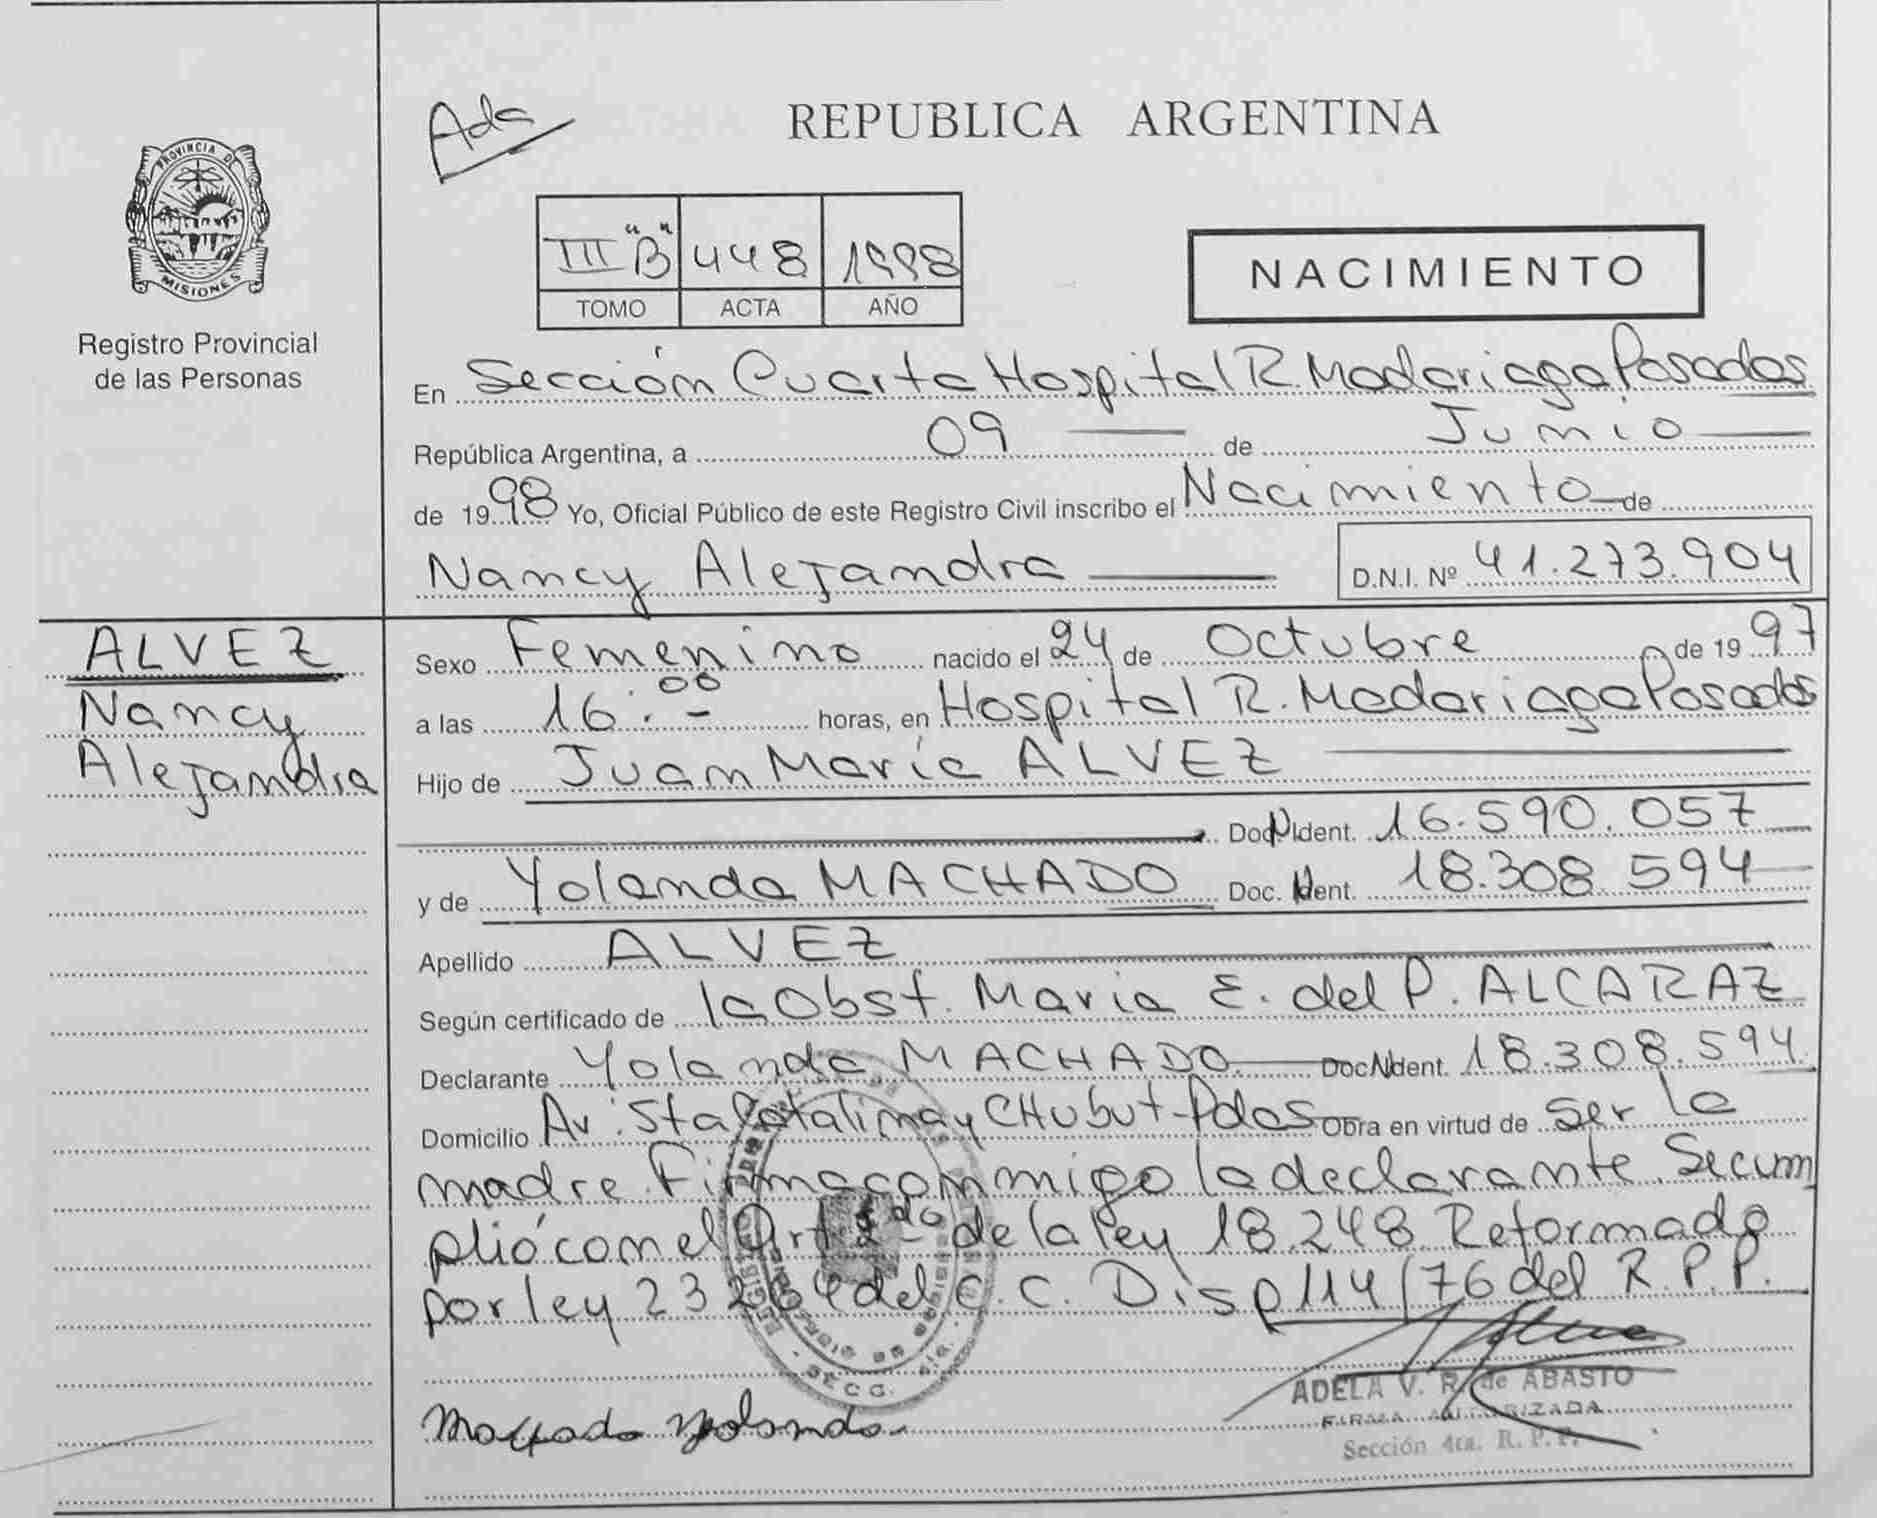 Ada
REPUBLICA ARGENTINA
PROVINCIA DE
MISIONES
Registro Provincial
de las Personas
III "B" 448 1998
TOMO ACTA AÑO
NACIMIENTO
En Sección Cuarta Hospital R. Madariaga Posadas
República Argentina, a 09 de Junio
de 1998 Yo, Oficial Público de este Registro Civil inscribo el Nacimiento de
Nancy Alejandra D.N.I. Nº 41.273.904
ALVEZ
Nancy
Alejandra
Sexo Femenino nacido el 24 de Octubre de 1997
a las 16:00 horas, en Hospital R. Madariaga Posadas
Hijo de Juan María ALVEZ
Doc. Ident. 16.590.057
y de Yolanda MACHADO Doc. Ident. 18.308.594
Apellido ALVEZ
Según certificado de la Obst. Maria E. del P. ALCARAZ
Declarante Yolanda MACHADO Doc. Ident. 18.308.594
Domicilio Av. Sta Catalina y CHubut-Pdas Obra en virtud de Ser la
madre. Firma conmigo la declarante. Se cum
plió con el Art 2do de la ley 18.248 Reformado
por ley 23264 del C. C. Disp 114/76 del R.P.P.
Machado Yolanda
ADELA V. R. de ABASTO
FIRMA AUTORIZADA
Sección 4ta. R. P. P.